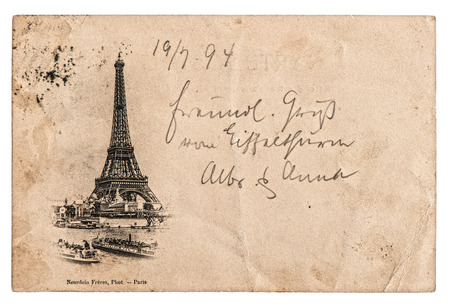 19/7.94
freundl. Gruß
vom Eiffelthurm
Alb. & Anna
Neurdein Frères, Phot — Paris